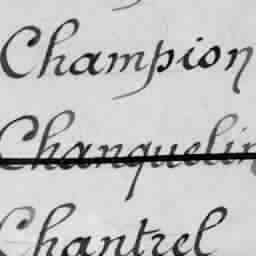 Champion
Chanquelin
Chantrel